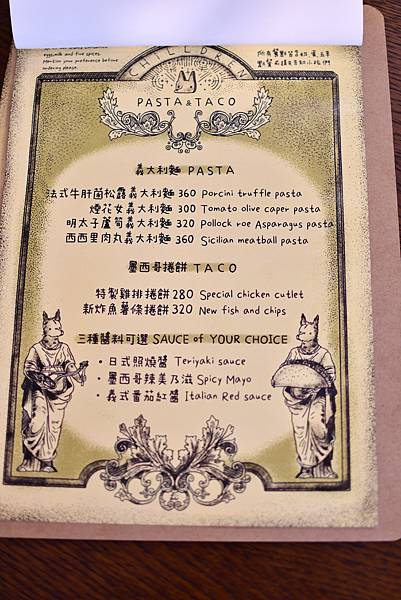 egg, milk and five spices.
Mention your preference before
ordering please.
所有餐點皆含奶、蛋、五辛
點餐前請先告知小幫們
CHILLDREN
PASTA & TACO
義大利麵 PASTA
法式牛肝菌松露義大利麵 360 Porcini truffle pasta
煙花女義大利麵 300 Tomato olive caper pasta
明太子蘆筍義大利麵 320 Pollock roe Asparagus pasta
西西里肉丸義大利麵 360 Sicilian meatball pasta
墨西哥捲餅 TACO
特製雞排捲餅 280 Special chicken cutlet
新炸魚薯條捲餅 320 New fish and chips
三種醬料可選 SAUCE of YOUR CHOICE
・日式照燒醬 Teriyaki sauce
・墨西哥辣美乃滋 Spicy Mayo
・義式蕃茄紅醬 Italian Red sauce